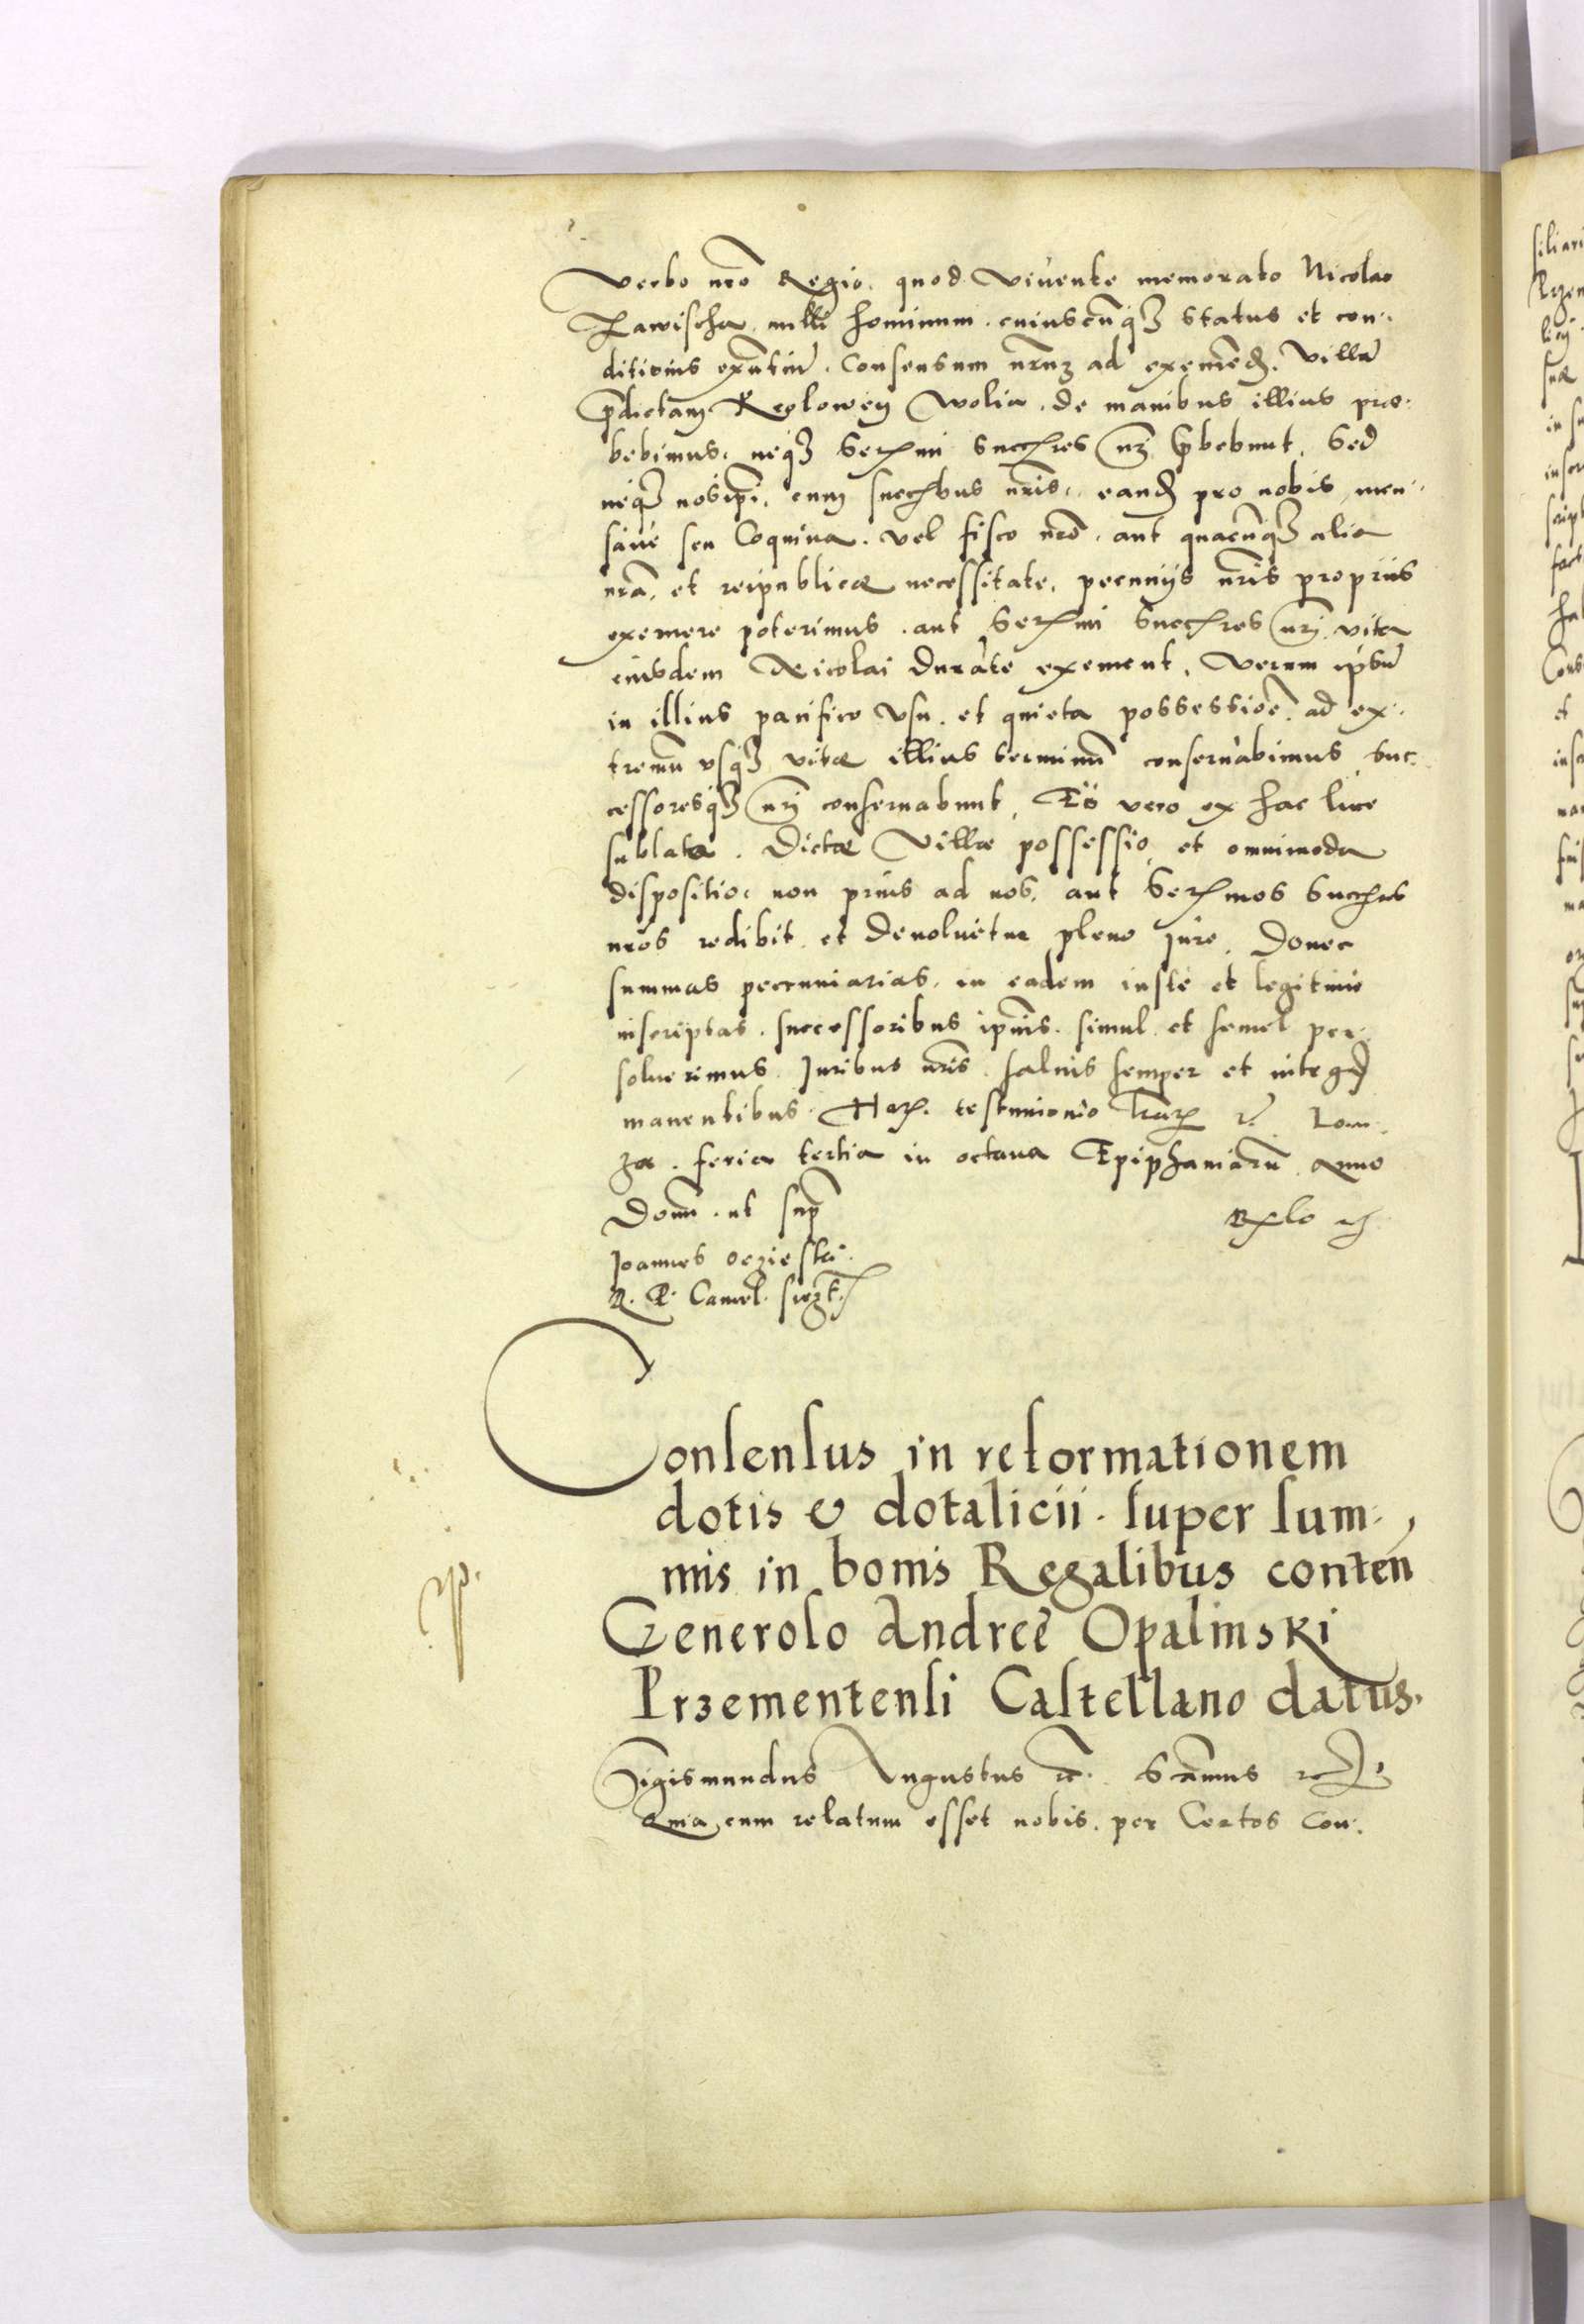 Verbo nrõ Regio. quod viuente memorato Nicolao
Pawischa nulli hominum. cuiuscũqз status et con-
ditionis exñtiũ. Consensum nrũз ad exemeñd. villã
p̃dictam Krolowey Wolia. de manibus illius prae-
bebimus. neqз Serᵐⁱ Succʳᵉˢ nri p̃bebunt. Sed
neqз nosipsi. cum succʳⁱbus nris. eand pro nobis men-
saue seu Coquina. vel fisco nrõ. aut quacũqз alia
nrã. et reipublicae necessitate. pecunijs nris proprijs
exemere poterimus. aut Serᵐⁱ Succʳᵉˢ nri vita
eiusdem Nicolai durãte exement. Verum ip̃sũ
in illius pacifico vsu. et quieta possessiõe. ad ex-
tremũ vsqз vitae illius terminũ conseruabimus. suc-
cessoresqз nri conseruabunt. Eo vero ex hac luce
sublato. Dictae Villae possessio et omnimoda
dispositio. non prius ad nos. aut Serᵐᵒs Succʳᵉˢ
nrõs redibit. et deuoluetur pleno jure. Donec
summas pecuniarias. in eadem iuste et legitime
inscriptas. successoribus ip̃ius. simul et semel per-
soluerimus. Juribus nris. saluis semper et integris
manentibus. Haȝ. testimonio lrãȝ ⁊c. Lom-
za. feria tertia in octaua Epiphaniarũ. anno
Domi. ut supᵃ
Joannes Oczieski
R. P. Cancel. sscpt.
Consensus in reformationem
dotis & dotalicii. super sum-
mis in bonis Regalibus conteñ
Generoso Andree Opalinski
Przementensi Castellano datus.
Sigismundus Augustus ⁊c. Sãmus ⁊c
Quia cum relatum esset nobis. per Certos Con-